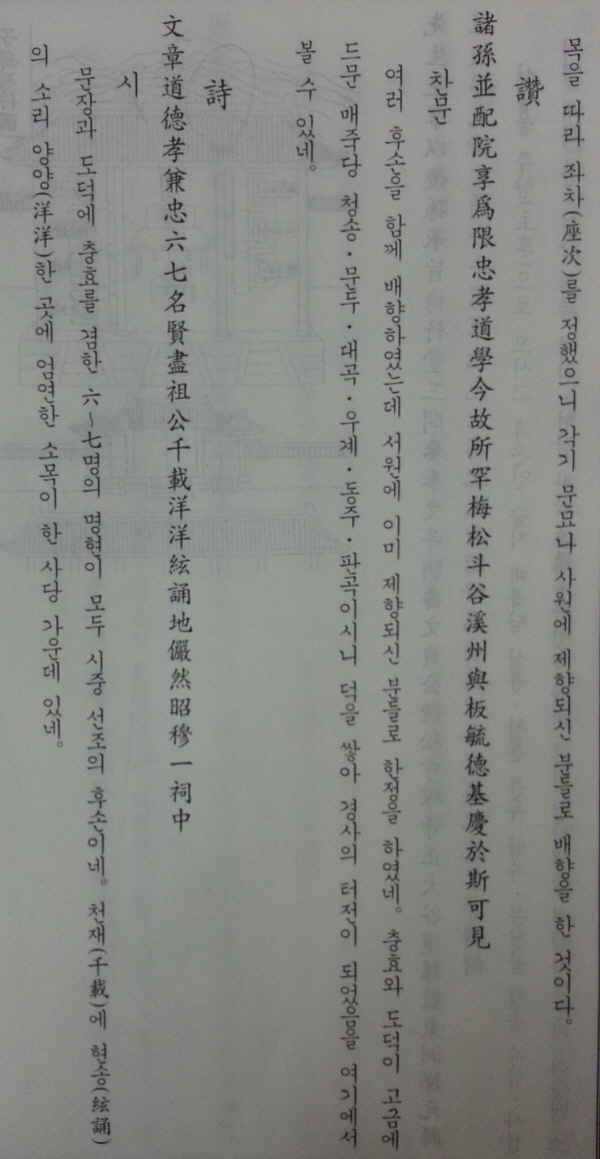 목을 따라 좌차(座次)를 정했으니 각기 문묘나 사원에 제향되신 분들로 배향을 한 것이다.
讚
諸孫並配院享爲限忠孝道學今故所罕梅松斗谷溪州與板毓德基慶於斯可見
찬문
여러 후손을 함께 배향하였는데 서원에 이미 제향되신 분들로 한정을 하였네. 충효와 도덕이 고금에
드문 매죽당 청송·문두·대곡·우계·동주·판곡이시니 덕을 쌓아 경사의 터전이 되었음을 여기에서
볼 수 있네.
詩
文章道德孝兼忠六七名賢盡祖公千載洋洋絃誦地儼然昭穆一祠中
시
문장과 도덕에 충효를 겸한 六~七명의 명현이 모두 시중 선조의 후손이네. 천재(千載)에 현송(絃誦)
의 소리 양양(洋洋)한 곳에 엄연한 소목이 한 사당 가운데 있네.